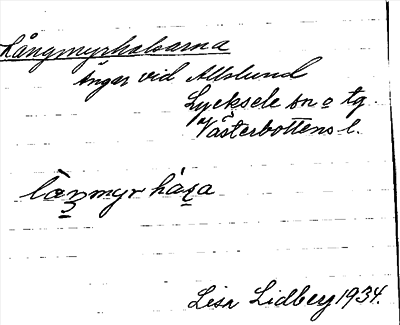 Långmyrhalsarna
Ängar vid Allslund
Lycksele sn o tg
Västerbottens l.
Lisa Lidberg 1934.